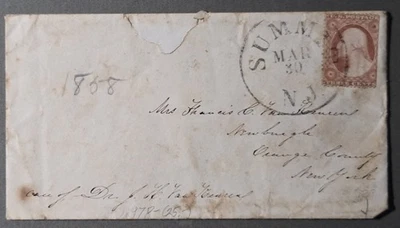 SUMMIT
MAR
30
N.J.
1858
Mrs Francis C. Van
Newburgh
Orange County
New York
care of Dr. J. H. Van